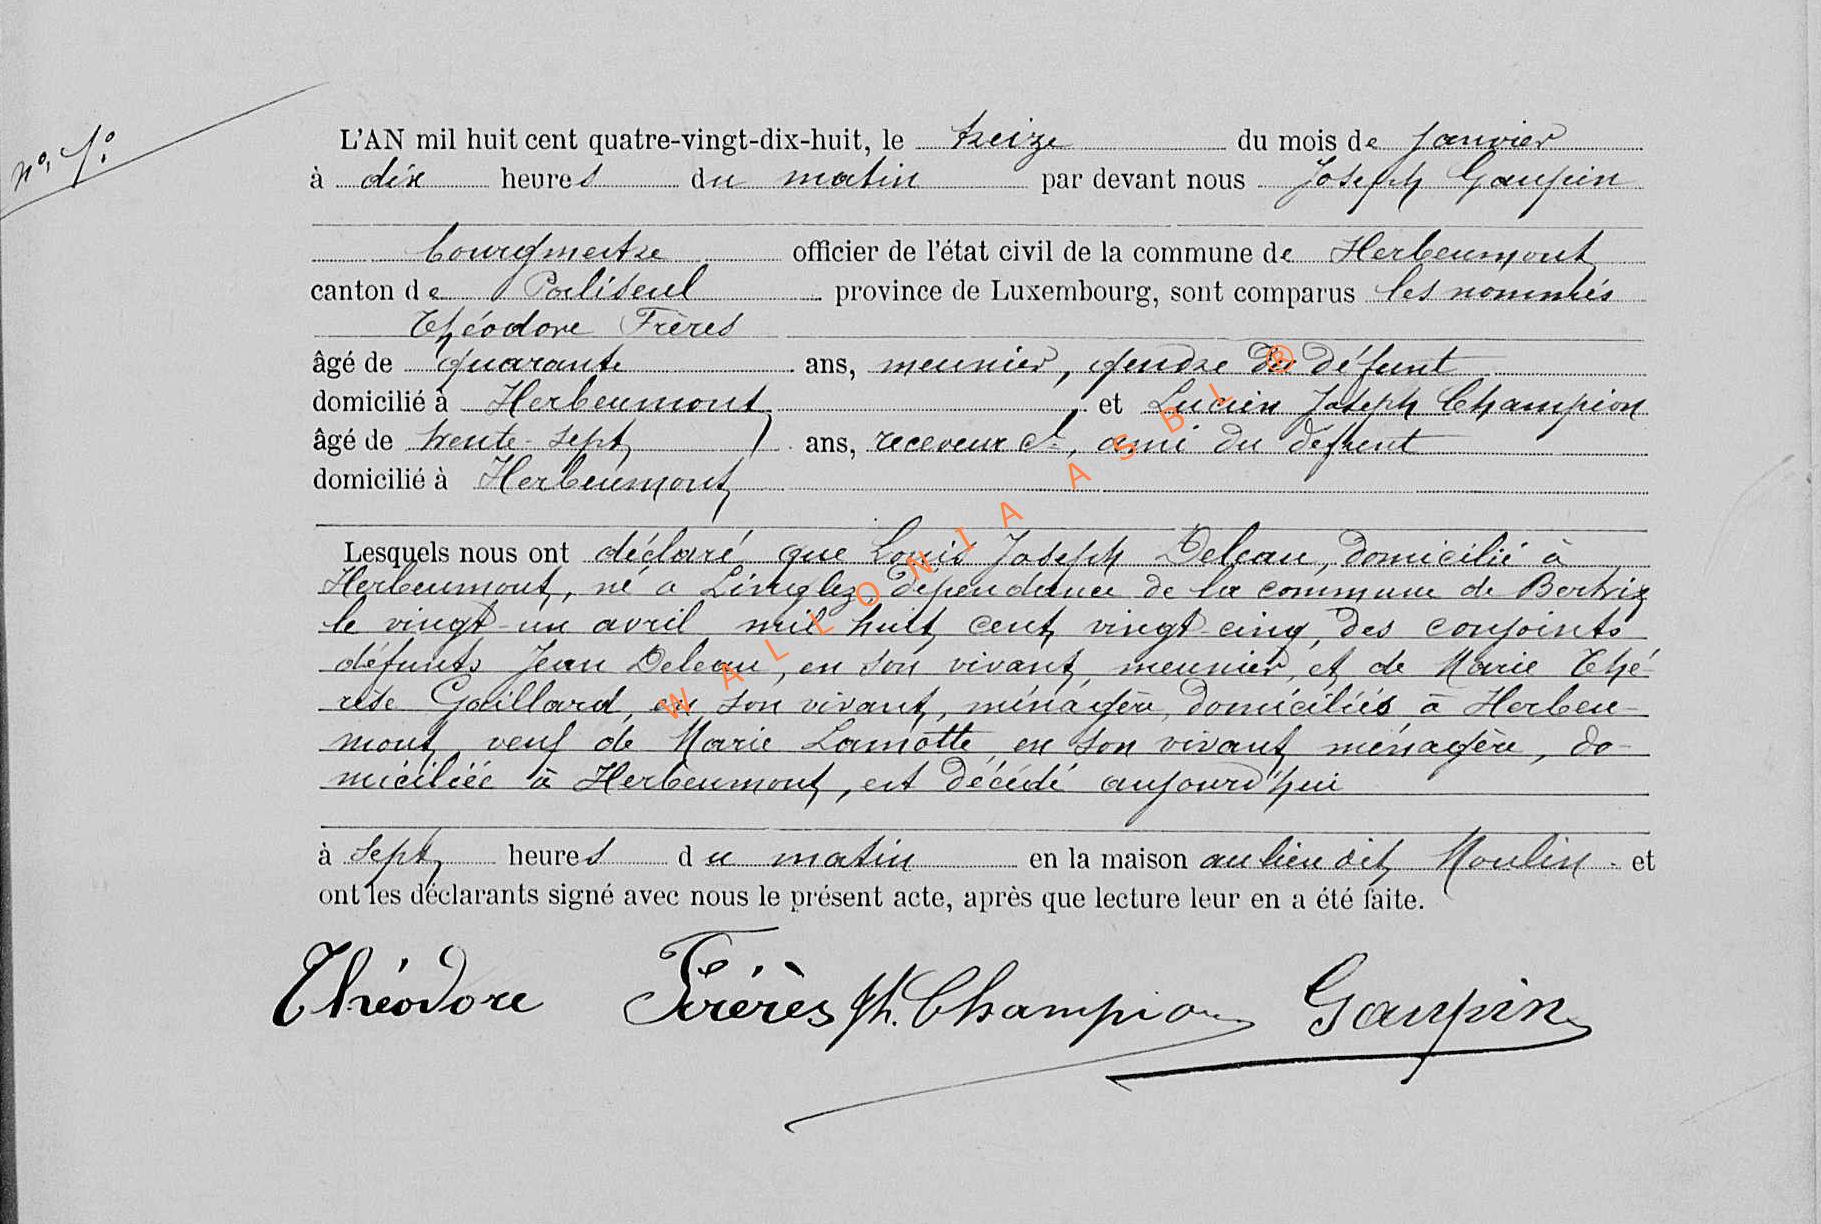 nº. 1º.
L'AN mil huit cent quatre-vingt-dix-huit, le treize du mois de janvier
à dix heures du matin par devant nous Joseph Gaupin
bourgmestre officier de l'état civil de la commune de Herbeumont
canton de Paliseul province de Luxembourg, sont comparus les nommés
Théodore Frères
âgé de quarante ans, meunier, gendre du défunt
domicilié à Herbeumont et Lucien Joseph Champion
âgé de trente-sept ans, receveur cl, ami du défunt
domicilié à Herbeumont
Lesquels nous ont déclaré que Louis Joseph Deleau, domicilié à
Herbeumont, né à Linglez, dépendance de la commune de Bertrix
le vingt-un avril mil huit cent vingt cinq, des conjoints
défunts Jean Deleau, en son vivant, meunier, et de Marie Thé-
rèse Gaillard, en son vivant, ménagère, domiciliés à Herbeu-
mont, veuf de Marie Lamotte en son vivant, ménagère, do-
miciliée à Herbeumont, est décédé aujourd'hui
à sept heures du matin en la maison au lieu dit Moulin et
ont les déclarants signé avec nous le présent acte, après que lecture leur en a été faite.
Théodore Frérès Jh. Champion Gaupin
WALLONIA ASBL ®